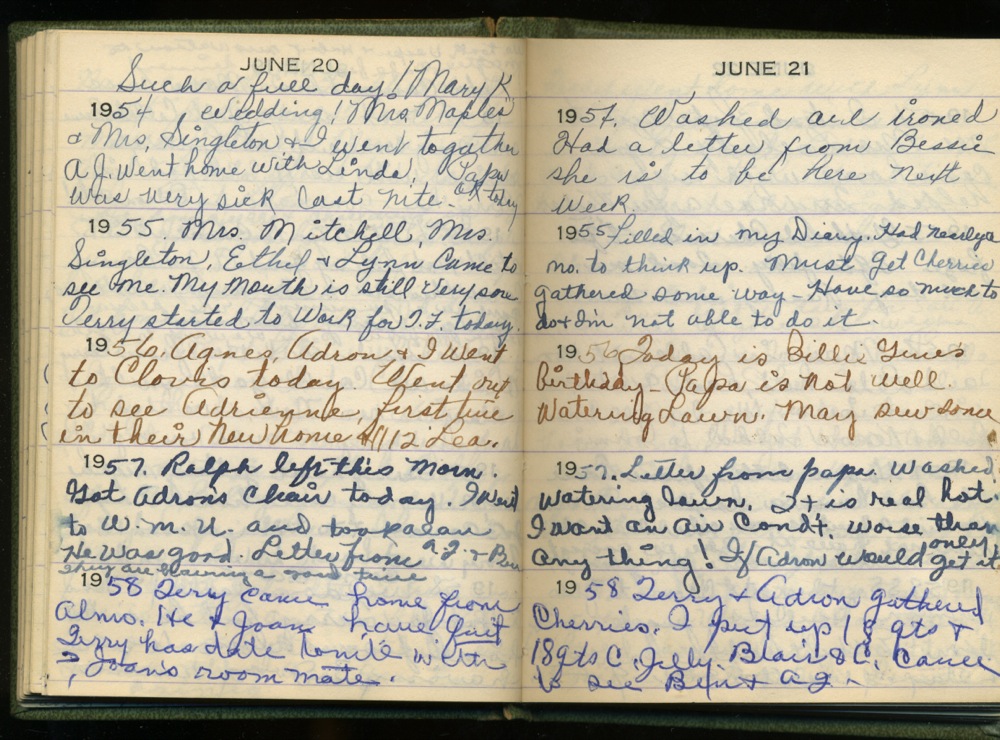 JUNE 20
Such a full day! Mary K.
1954 Wedding! Mrs Maples
& Mrs. Singleton & I went togather
A.J. Went home with Linda. Papa
was very sick last nite. ok today
1955. Mrs. Mitchell, Mrs.
Singleton, Ethel & Lynn Came to
see me. My Mouth is still very sore
Terry started to Work for I.F. today.
1956. Agnes, Adron & I Went
to Clovis today. Went out
to see Adrienne, first time
in their New home 1112 Lea.
1957. Ralph left this Morn.
Got Adrons Chair today. I Went
to W.M.U. and took
He Was good. Letter from A.J. & Ben
They are having a good time
1958 Terry Came home from
Almo. He & Joan have quit
Terry has date tonite with
Joan's room mate.
JUNE 21
1954. Washed and ironed
Had a letter from Bessie
she is to be here next
Week.
1955 Filled in my Diary. Had nearly a
mo. to think up. Must get Cherries
gathered some way - Have so much to
do & I'm not able to do it.
1956 Today is Billie Gene's
birthday. Papa is not well.
Watering Lawn. May sew some
1957. Letter from papa. Washed.
Watering lawn. It is real hot.
I want an air Cond't. worse than
any thing! If Adron would only get it
1958 Terry & Adron gathered
Cherries. I put up 18 qts &
18 qts C. Jelly. Blair & C. Came
to see Ben & A.J.